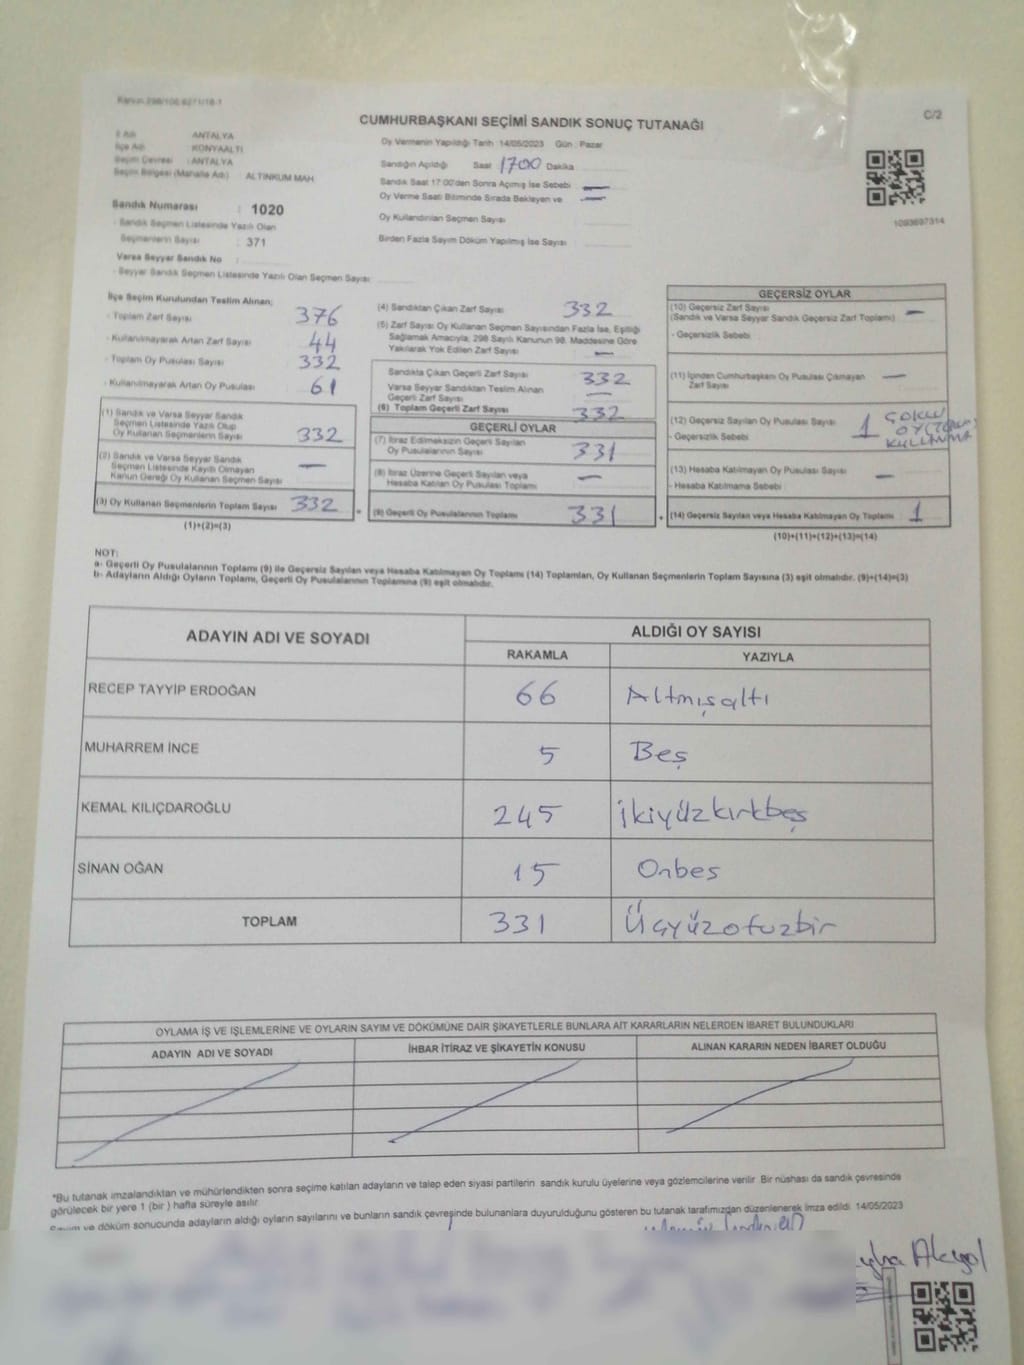 C/2
CUMHURBAŞKANI SEÇİMİ SANDIK SONUÇ TUTANAĞI
İl Adı : ANTALYA
İlçe Adı : KONYAALTI
Seçim Çevresi : ANTALYA
Seçim Bölgesi (Mahalle Adı) : ALTINKUM MAH
Sandık Numarası : 1020
- Sandık Seçmen Listesinde Yazılı Olan
Seçmenlerin Sayısı : 371
Varsa Seyyar Sandık No
- Seyyar Sandık Seçmen Listesinde Yazılı Olan Seçmen Sayısı:
Oy Vermenin Yapıldığı Tarih 14/05/2023 Gün : Pazar
Sandığın Açıldığı Saat 1700 Dakika
Sandık Saat 17:00'den Sonra Açımış İse Sebebi —
Oy Verme Saati Bitiminde Sırada Bekleyen ve —
Oy Kullandırılan Seçmen Sayısı
Birden Fazla Sayım Döküm Yapılmış İse Sayısı
1093697314
İlçe Seçim Kurulundan Teslim Alınan;
- Toplam Zarf Sayısı 376
- Kullanılmayarak Artan Zarf Sayısı : 44
- Toplam Oy Pusulası Sayısı 332
- Kullanılmayarak Artan Oy Pusulası 61
(1) Sandık ve Varsa Seyyar Sandık
Seçmen Listesinde Yazılı Olup
Oy Kullanan Seçmenlerin Sayısı 332
(2) Sandık ve Varsa Seyyar Sandık
Seçmen Listesinde Kayıtlı Olmayan
Kanun Gereği Oy Kullanan Seçmen Sayısı —
(3) Oy Kullanan Seçmenlerin Toplam Sayısı 332
(1)+(2)=(3)
(4) Sandıktan Çıkan Zarf Sayısı 332
(5) Zarf Sayısı Oy Kullanan Seçmen Sayısından Fazla İse, Eşitliği
Sağlamak Amacıyla, 298 Sayılı Kanunun 98. Maddesine Göre
Yakılarak Yok Edilen Zarf Sayısı —
Sandıkta Çıkan Geçerli Zarf Sayısı 332
Varsa Seyyar Sandıktan Teslim Alınan
Geçerli Zarf Sayısı —
(6) Toplam Geçerli Zarf Sayısı 332
GEÇERLİ OYLAR
(7) İtiraz Edilmeksizin Geçerli Sayılan
Oy Pusulalarının Sayısı 331
(8) İtiraz Üzerine Geçerli Sayılan veya
Hesaba Katılan Oy Pusulası Toplamı —
(9) Geçerli Oy Pusulalarının Toplamı 331
GEÇERSİZ OYLAR
(10) Geçersiz Zarf Sayısı —
(Sandık ve Varsa Seyyar Sandık Geçersiz Zarf Toplamı)
- Geçersizlik Sebebi
(11) İçinden Cumhurbaşkanı Oy Pusulası Çıkmayan —
Zarf Sayısı
(12) Geçersiz Sayılan Oy Pusulası Sayısı 1 ÇOKLU
- Geçersizlik Sebebi KULLANMA
(13) Hesaba Katılmayan Oy Pusulası Sayısı —
- Hesaba Katılmama Sebebi
(14) Geçersiz Sayılan veya Hesaba Katılmayan Oy Toplamı 1
(10)+(11)+(12)+(13)=(14)
NOT:
a- Geçerli Oy Pusulalarının Toplamı (9) ile Geçersiz Sayılan veya Hesaba Katılmayan Oy Toplamı (14) Toplamları, Oy Kullanan Seçmenlerin Toplam Sayısına (3) eşit olmalıdır. (9)+(14)=(3)
b- Adayların Aldığı Oyların Toplamı, Geçerli Oy Pusulalarının Toplamına (9) eşit olmalıdır.
ADAYIN ADI VE SOYADI
ALDIĞI OY SAYISI
RAKAMLA YAZIYLA
RECEP TAYYİP ERDOĞAN 66 Altmışaltı
MUHARREM İNCE 5 Beş
KEMAL KILIÇDAROĞLU 245 İkiyüzkırkbeş
SİNAN OĞAN 15 Onbes
TOPLAM 331 Üçyüzotuzbir
OYLAMA İŞ VE İŞLEMLERİNE VE OYLARIN SAYIM VE DÖKÜMÜNE DAİR ŞİKAYETLERLE BUNLARA AİT KARARLARIN NELERDEN İBARET BULUNDUKLARI
ADAYIN ADI VE SOYADI İHBAR İTİRAZ VE ŞİKAYETİN KONUSU ALINAN KARARIN NEDEN İBARET OLDUĞU
*Bu tutanak imzalandıktan ve mühürlendikten sonra seçime katılan adayların ve talep eden siyasi partilerin sandık kurulu üyelerine veya gözlemcilerine verilir. Bir nüshası da sandık çevresinde
görülecek bir yere 1 (bir ) hafta süreyle asılır.
Sayım ve döküm sonucunda adayların aldığı oyların sayılarını ve bunların sandık çevreşinde bulunanlara duyurulduğunu gösteren bu tutanak tarafımızdan düzenlenerek imza edildi. 14/05/2023
Akyol